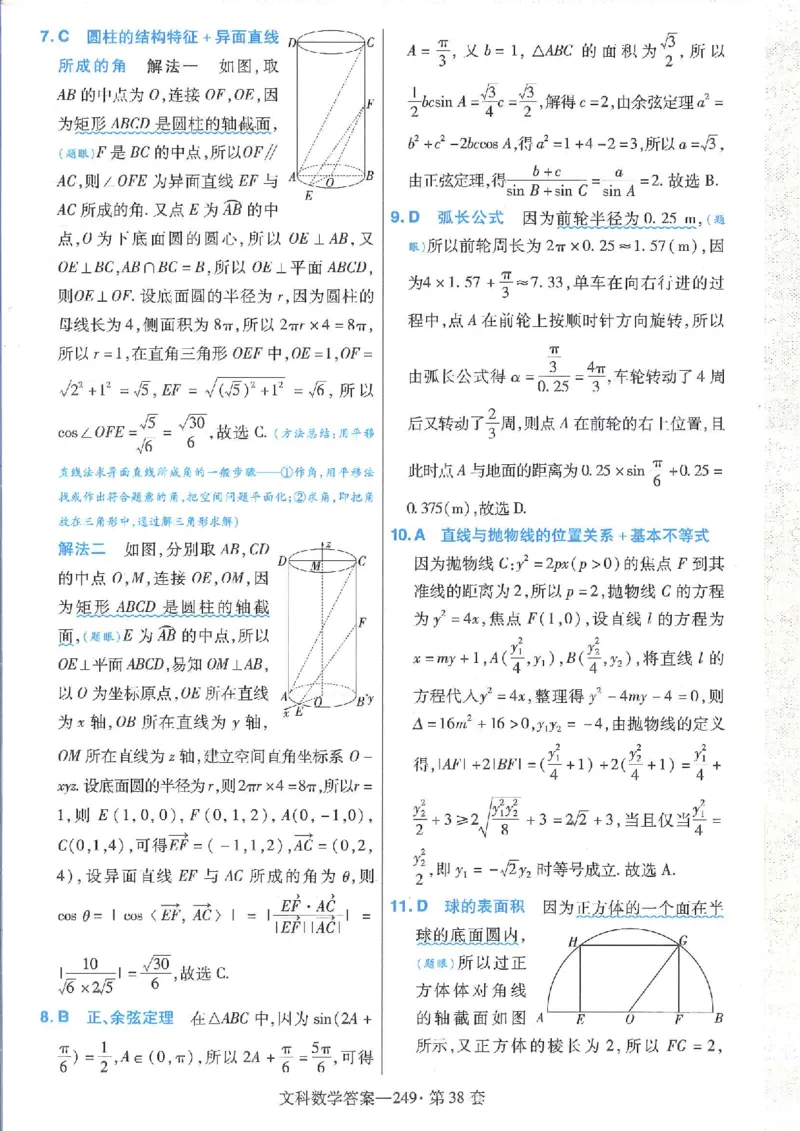 7.C 圆柱的结构特征+异面直线
所成的角 解法一 如图,取
AB的中点为O,连接OF,OE,因
为矩形ABCD是圆柱的轴截面,
(题眼)F是BC的中点,所以OF∥
AC,则∠OFE为异面直线EF与
AC所成的角.又点E为AB⌢的中
点,O为下底面圆的圆心,所以OE⊥AB,又
OE⊥BC,AB∩BC=B,所以OE⊥平面ABCD,
则OE⊥OF.设底面圆的半径为r,因为圆柱的
母线长为4,侧面积为8π,所以2πr×4=8π,
所以r=1,在直角三角形OEF中,OE=1,OF=
√(2²+1²)=√5,EF=√((√5)²+1²)=√6,所以
cos∠OFE=√5/√6=√30/6,故选C.(方法总结:用平移
直线法求异面直线所成角的一般步骤——①作角,用平移法
找或作出符合题意的角,把空间问题平面化;②求角,即把角
放在三角形中,通过解三角形求解)
解法二 如图,分别取AB,CD
的中点O,M,连接OE,OM,因
为矩形ABCD是圆柱的轴截
面,(题眼)E为AB⌢的中点,所以
OE⊥平面ABCD,易知OM⊥AB,
以O为坐标原点,OE所在直线
为x轴,OB所在直线为y轴,
OM所在直线为z轴,建立空间直角坐标系O-
xyz.设底面圆的半径为r,则2πr×4=8π,所以r=
1,则E(1,0,0),F(0,1,2),A(0,-1,0),
C(0,1,4),可得EF→=(-1,1,2),AC→=(0,2,
4),设异面直线EF与AC所成的角为θ,则
cosθ=|cos〈EF→,AC→〉|=|EF→·AC→/|EF→||AC→||=
|10/(√6×2√5)|=√30/6,故选C.
8.B 正、余弦定理 在△ABC中,因为sin(2A+
π/6)=1/2,A∈(0,π),所以2A+π/6=5π/6,可得
D
C
F
A
O
B
E
z
D
M
C
F
A
O
B
y
x
E
A=π/3,又b=1,△ABC的面积为√3/2,所以
1/2bcsin A=√3/4c=√3/2,解得c=2,由余弦定理a²=
b²+c²-2bccos A,得a²=1+4-2=3,所以a=√3,
由正弦定理,得(b+c)/(sin B+sin C)=a/sin A=2.故选B.
9.D 弧长公式 因为前轮半径为0.25 m,(题
眼)所以前轮周长为2π×0.25≈1.57(m),因
为4×1.57+π/3≈7.33,单车在向右行进的过
程中,点A在前轮上按顺时针方向旋转,所以
由弧长公式得α=(π/3)/0.25=4π/3,车轮转动了4周
后又转动了2/3周,则点A在前轮的右上位置,且
此时点A与地面的距离为0.25×sin π/6+0.25=
0.375(m),故选D.
10.A 直线与抛物线的位置关系+基本不等式
因为抛物线C:y²=2px(p>0)的焦点F到其
准线的距离为2,所以p=2,抛物线C的方程
为y²=4x,焦点F(1,0),设直线l的方程为
x=my+1,A(y₁²/4,y₁),B(y₂²/4,y₂),将直线l的
方程代入y²=4x,整理得y²-4my-4=0,则
Δ=16m²+16>0,y₁y₂=-4,由抛物线的定义
得,|AF|+2|BF|=(y₁²/4+1)+2(y₂²/4+1)=y₁²/4+
y₂²/2+3≥2√(y₁²y₂²/8)+3=2√2+3,当且仅当y₁²/4=
y₂²/2,即y₁=-√2y₂时等号成立.故选A.
11.D 球的表面积 因为正方体的一个面在半
球的底面圆内,
(题眼)所以过正
方体体对角线
的轴截面如图
所示,又正方体的棱长为2,所以FG=2,
H
G
A
E
O
F
B
文科数学答案—249·第38套